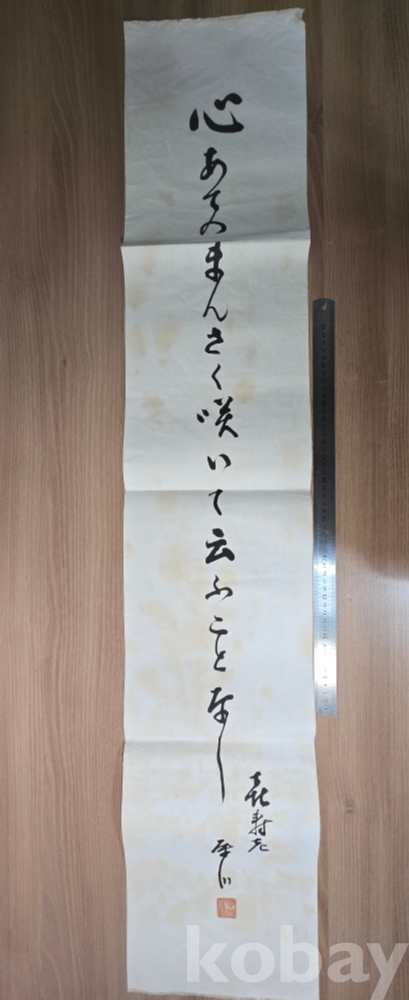 心あてのまんさく咲いて云ふことなし
喜寿
kobay